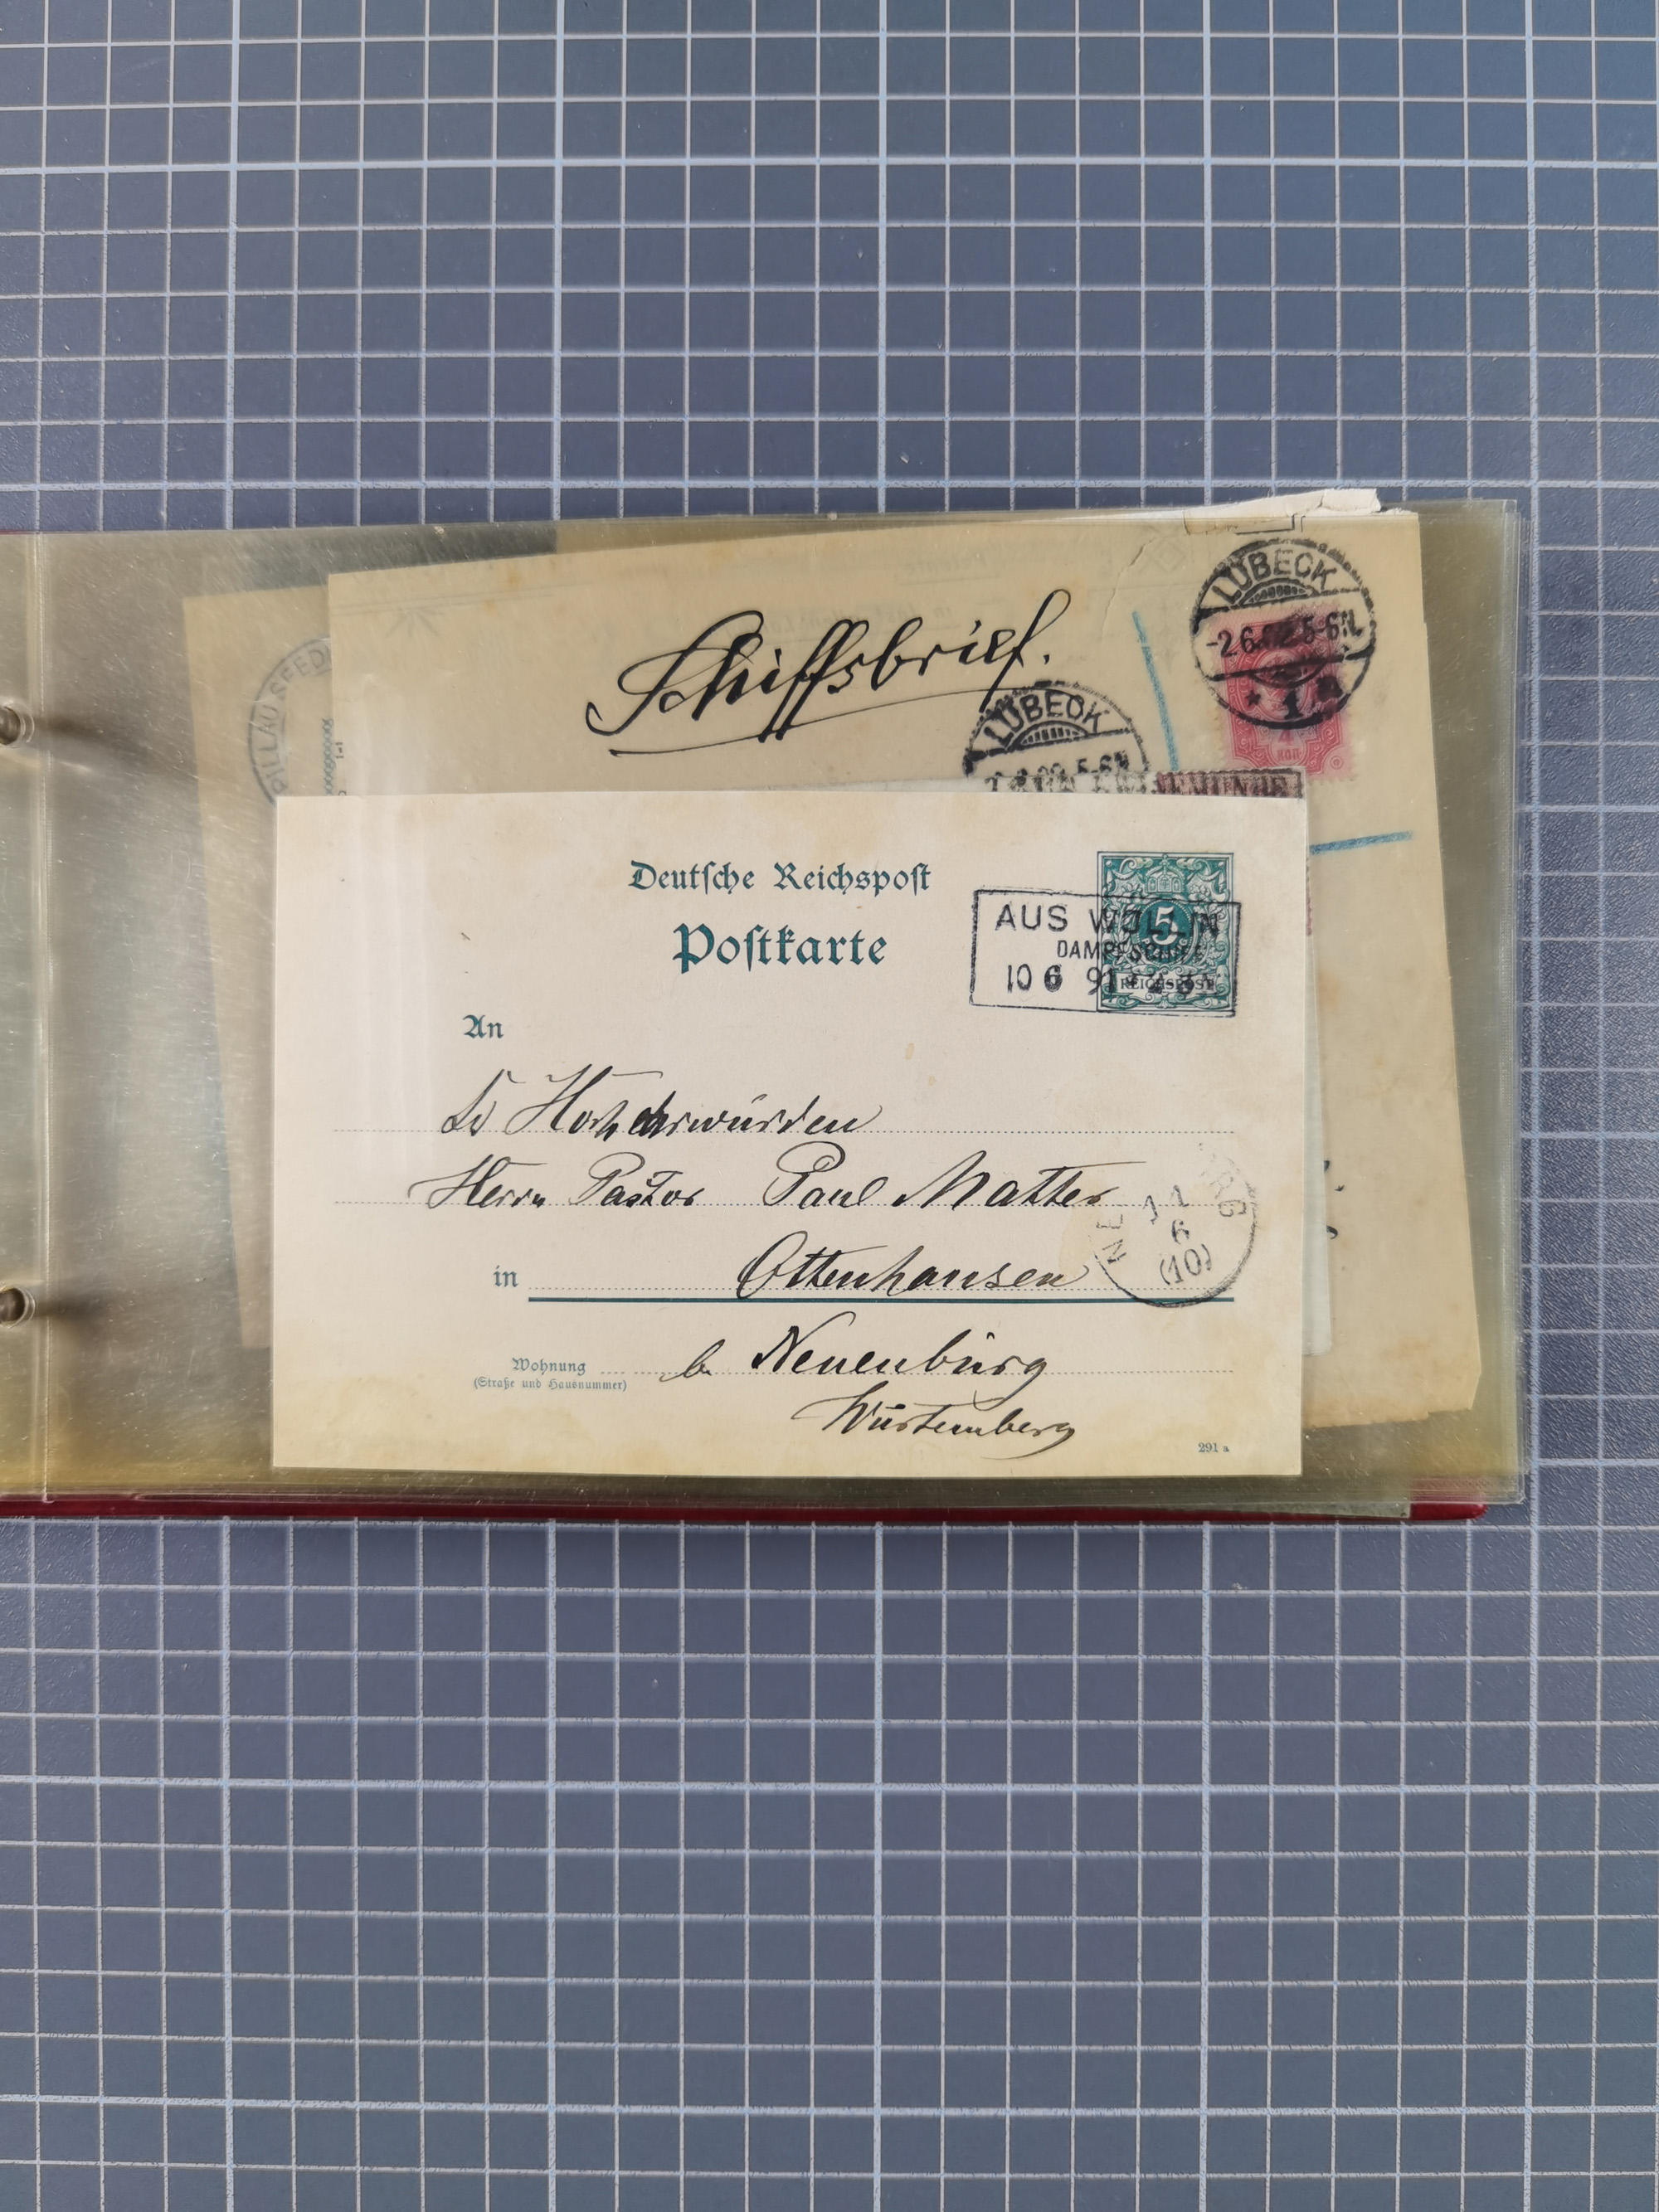 PILLAU SEED
Schiffsbrief.
LÜBECK
LÜBECK
-2.6.02.5-6N.
* 1 a
KOП
Deutsche Reichspost
Postkarte
AUS WOLLIN
DAMPFSCHIFF
10 6 91
5
REICHSPOST
An
Hochehrwürden
Herrn Pastor Paul Matter
11
6
(10)
in Ottenhausen
Wohnung b. Neuenbürg
(Straße und Hausnummer)
Würtemberg
291 a